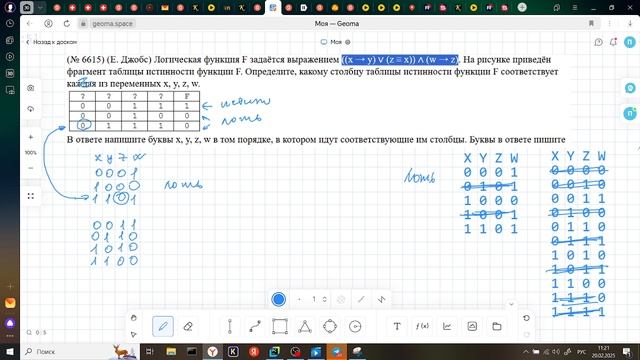 geoma.space
Моя — Geoma
Назад к доскам
Моя
(№ 6615) (Е. Джобс) Логическая функция F задаётся выражением ((x → y) ∨ (z ≡ x)) ∧ (w → z). На рисунке приведён
фрагмент таблицы истинности функции F. Определите, какому столбцу таблицы истинности функции F соответствует
каждая из переменных x, y, z, w.
? ? ? ? F
0 0 1 1 1
0 0 1 1 0
0 1 1 1 0
истина
ложь
В ответе напишите буквы x, y, z, w в том порядке, в котором идут соответствующие им столбцы. Буквы в ответе пишите
x y z w
0 0 0 1
1 0 0 0
1 1 0 1
ложь
0 0 1 1
0 1 1 0
1 0 1 0
1 1 0 0
ложь
X Y Z W
0 0 0 1
0 1 0 1
1 0 0 0
1 0 0 1
1 1 0 1
X Y Z W
0 0 0 0
0 0 1 0
0 0 1 1
0 1 0 0
0 1 1 0
0 1 1 1
1 0 1 0
1 0 1 1
1 1 0 0
1 1 1 0
1 1 1 1
100%
1
T
f(x)
0 : 5
Поиск
РУС
11:21
20.02.2025